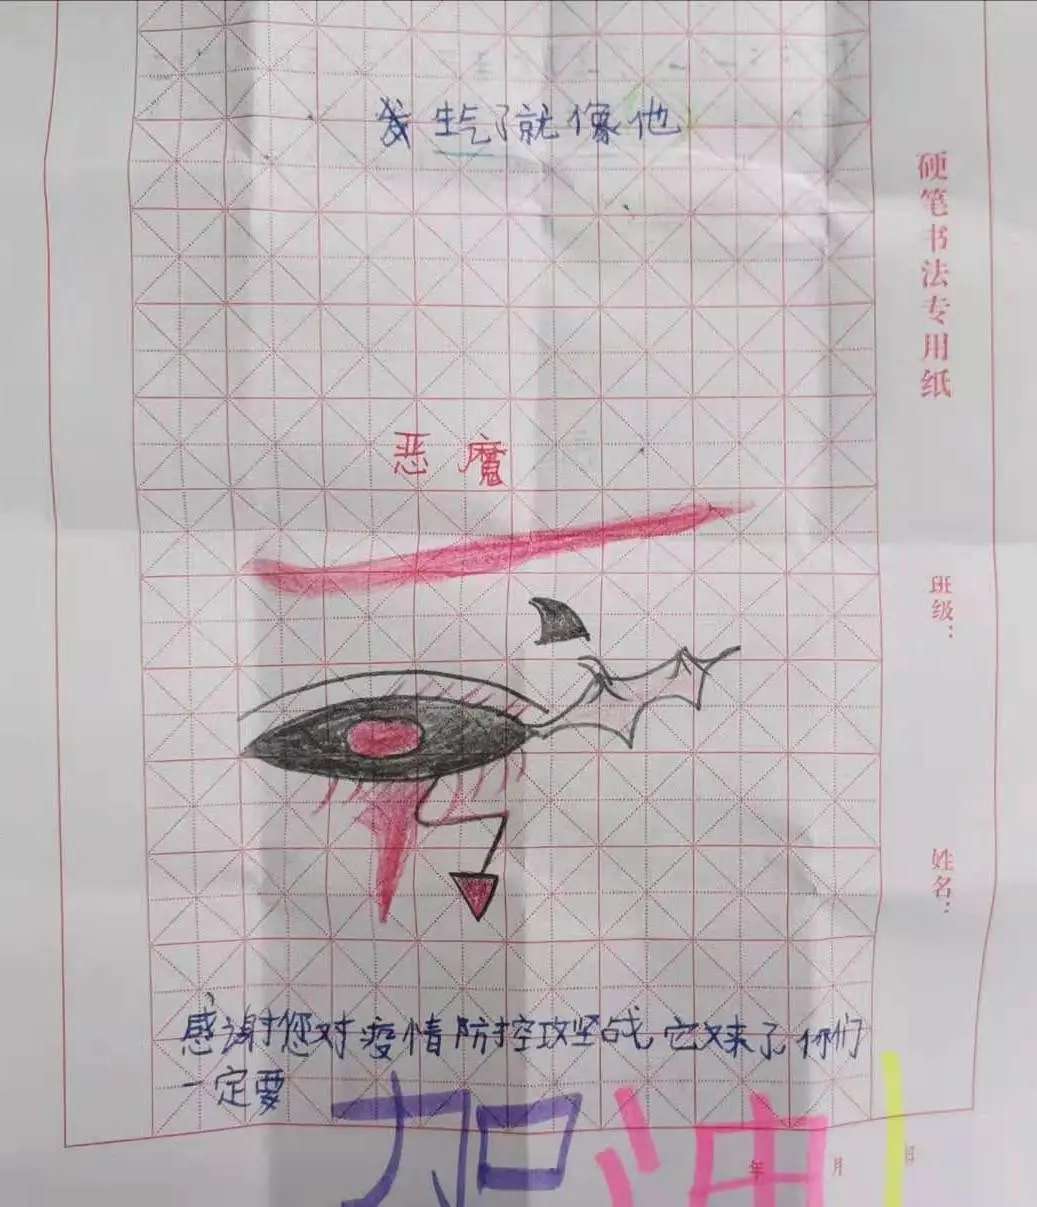 我生气了就像他
恶魔
感谢您对疫情防控攻坚战,它又来了你们
一定要
加油!
硬笔书法专用纸
班级:
姓名:
年 月 日